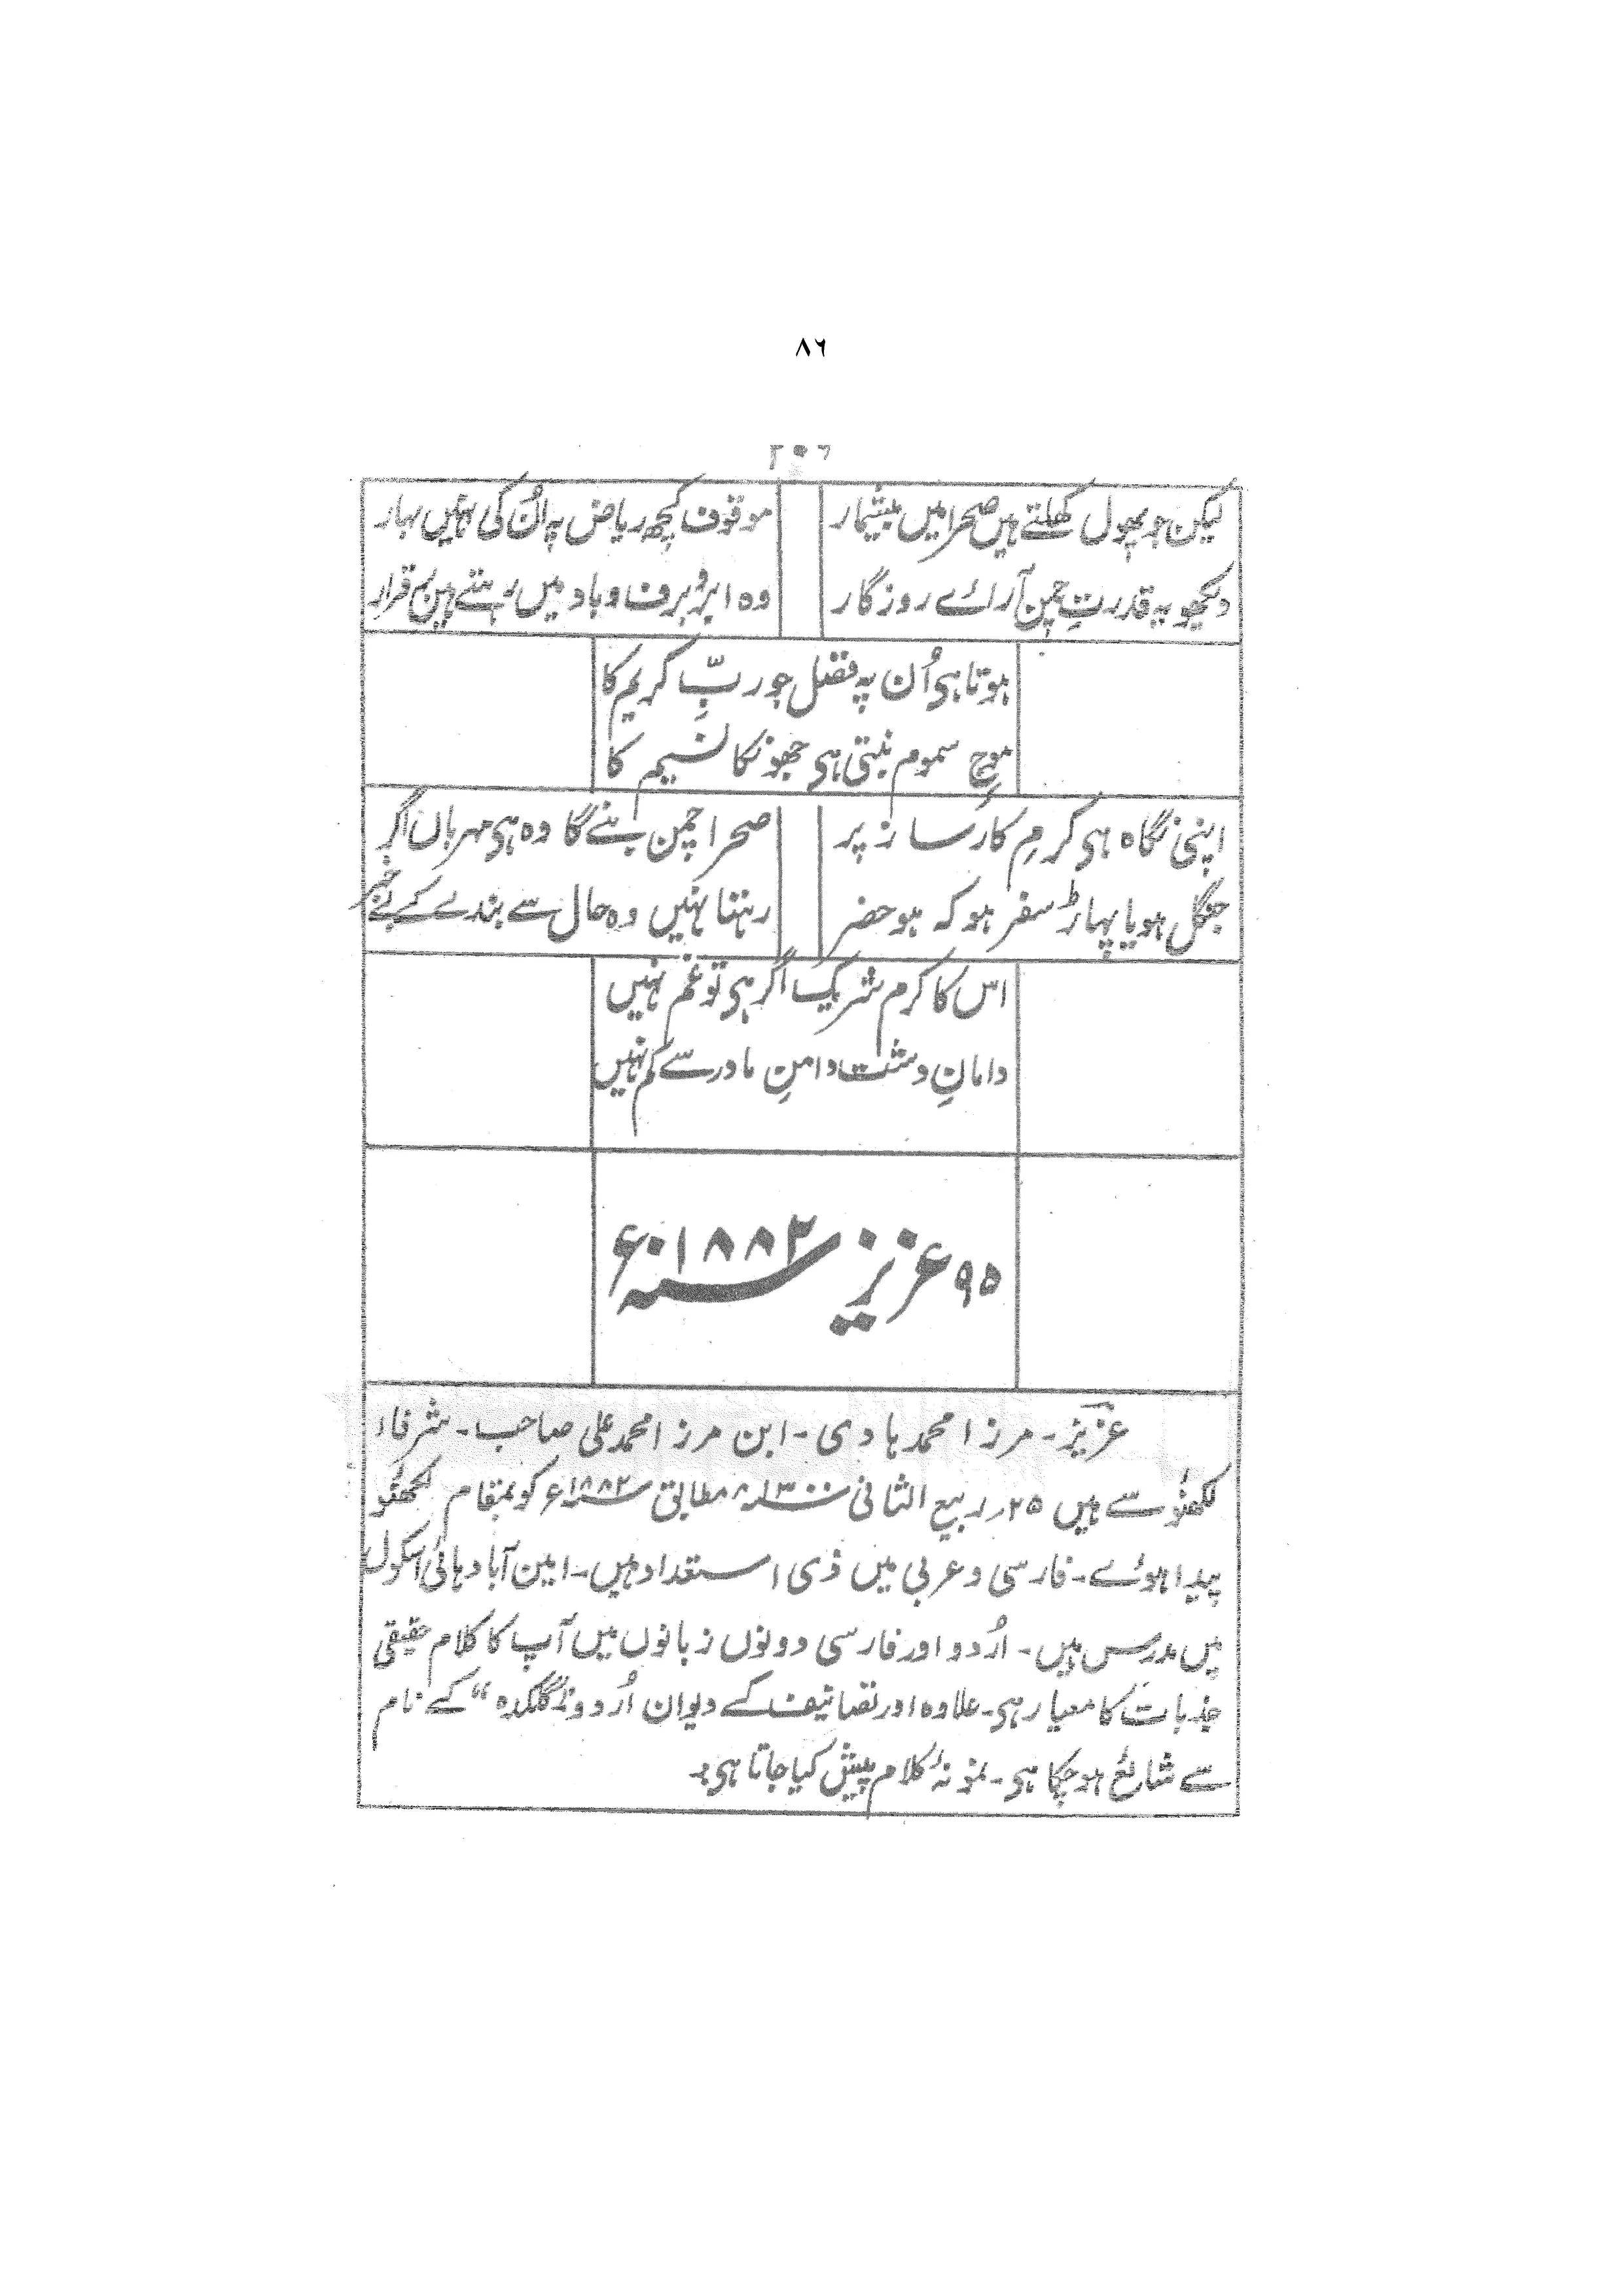 ۸۶
۲۰۶
لیکن جو پھول کھلتے ہیں صحرا میں بیشمار
موقوف کچھ ریاض پہ اُن کی نہیں بہار
دیکھو یہ قدرتِ چمن آرائے روزگار
وہ ابر و برف و باد میں رہتے ہیں برقرار
ہوتا ہی اُن پہ فضل جو ربِّ کریم کا
موجِ سموم بنتی ہی جھونکا نسیم کا
اپنی نگاہ ہی کرمِ کارساز پر
صحرا چمن بنے گا وہ ہی مہرباں اگر
جنگل ہو یا پہاڑ سفر ہو کہ ہو حضر
رہتا نہیں وہ حال سے بندے کے بے خبر
اس کا کرم شریک اگر ہی تو غم نہیں
دامانِ دشت دامنِ مادر سے کم نہیں
۹۵ عزیز سنہ ۱۸۸۲ء
عزیز۔ مرزا محمد ہادی۔ ابن مرزا محمد علی صاحب۔ شرفاء
لکھنؤ سے ہیں ۲۵ ربیع الثانی سنہ ۱۳۰۰ھ مطابق سنہ ۱۸۸۲ء کو بمقام لکھنؤ
پیدا ہوئے۔ فارسی و عربی میں ذی استعداد ہیں۔ امین آباد ہائی اسکول
میں مدرس ہیں۔ اُردو اور فارسی دونوں زبانوں میں آپ کا کلام حقیقی
جذبات کا معیار ہی۔ علاوہ اور تصانیف کے دیوان اُردو "گلکدہ" کے نام
سے شائع ہو چکا ہی۔ نمونۂ کلام پیش کیا جاتا ہی۔